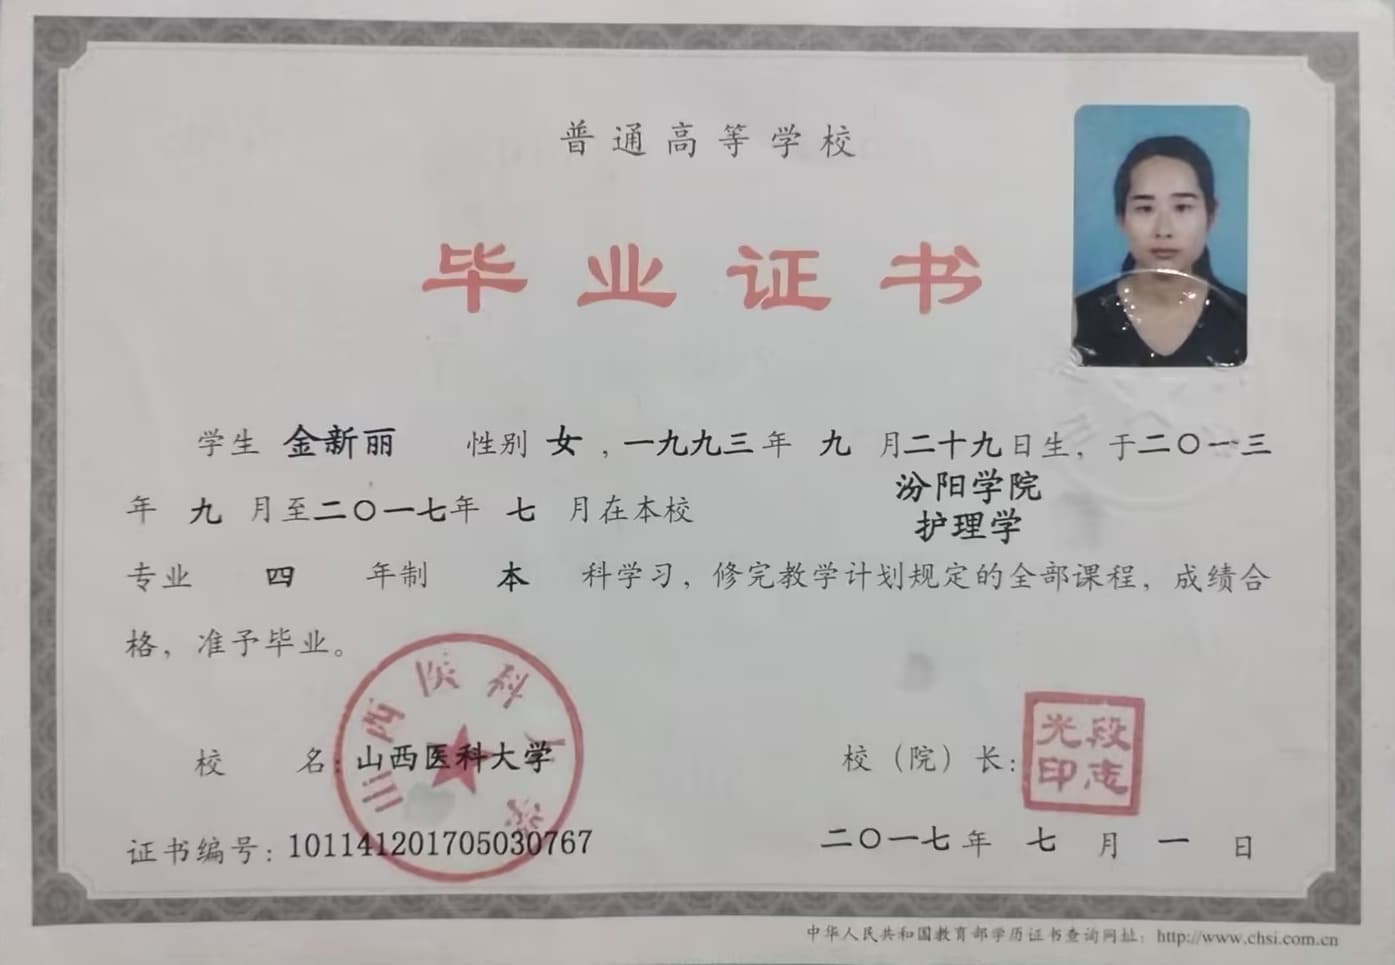 普通高等学校
毕业证书
学生 金新丽 性别 女，一九九三年 九 月二十九日生，于二〇一三
年 九 月至二〇一七年 七 月在本校 汾阳学院
护理学
专业 四 年制 本 科学习，修完教学计划规定的全部课程，成绩合
格，准予毕业。
山西医科大学
校 名：山西医科大学
校（院）长：
段志光印
证书编号：101141201705030767
二〇一七年 七 月 一 日
中华人民共和国教育部学历证书查询网址：http://www.chsi.com.cn